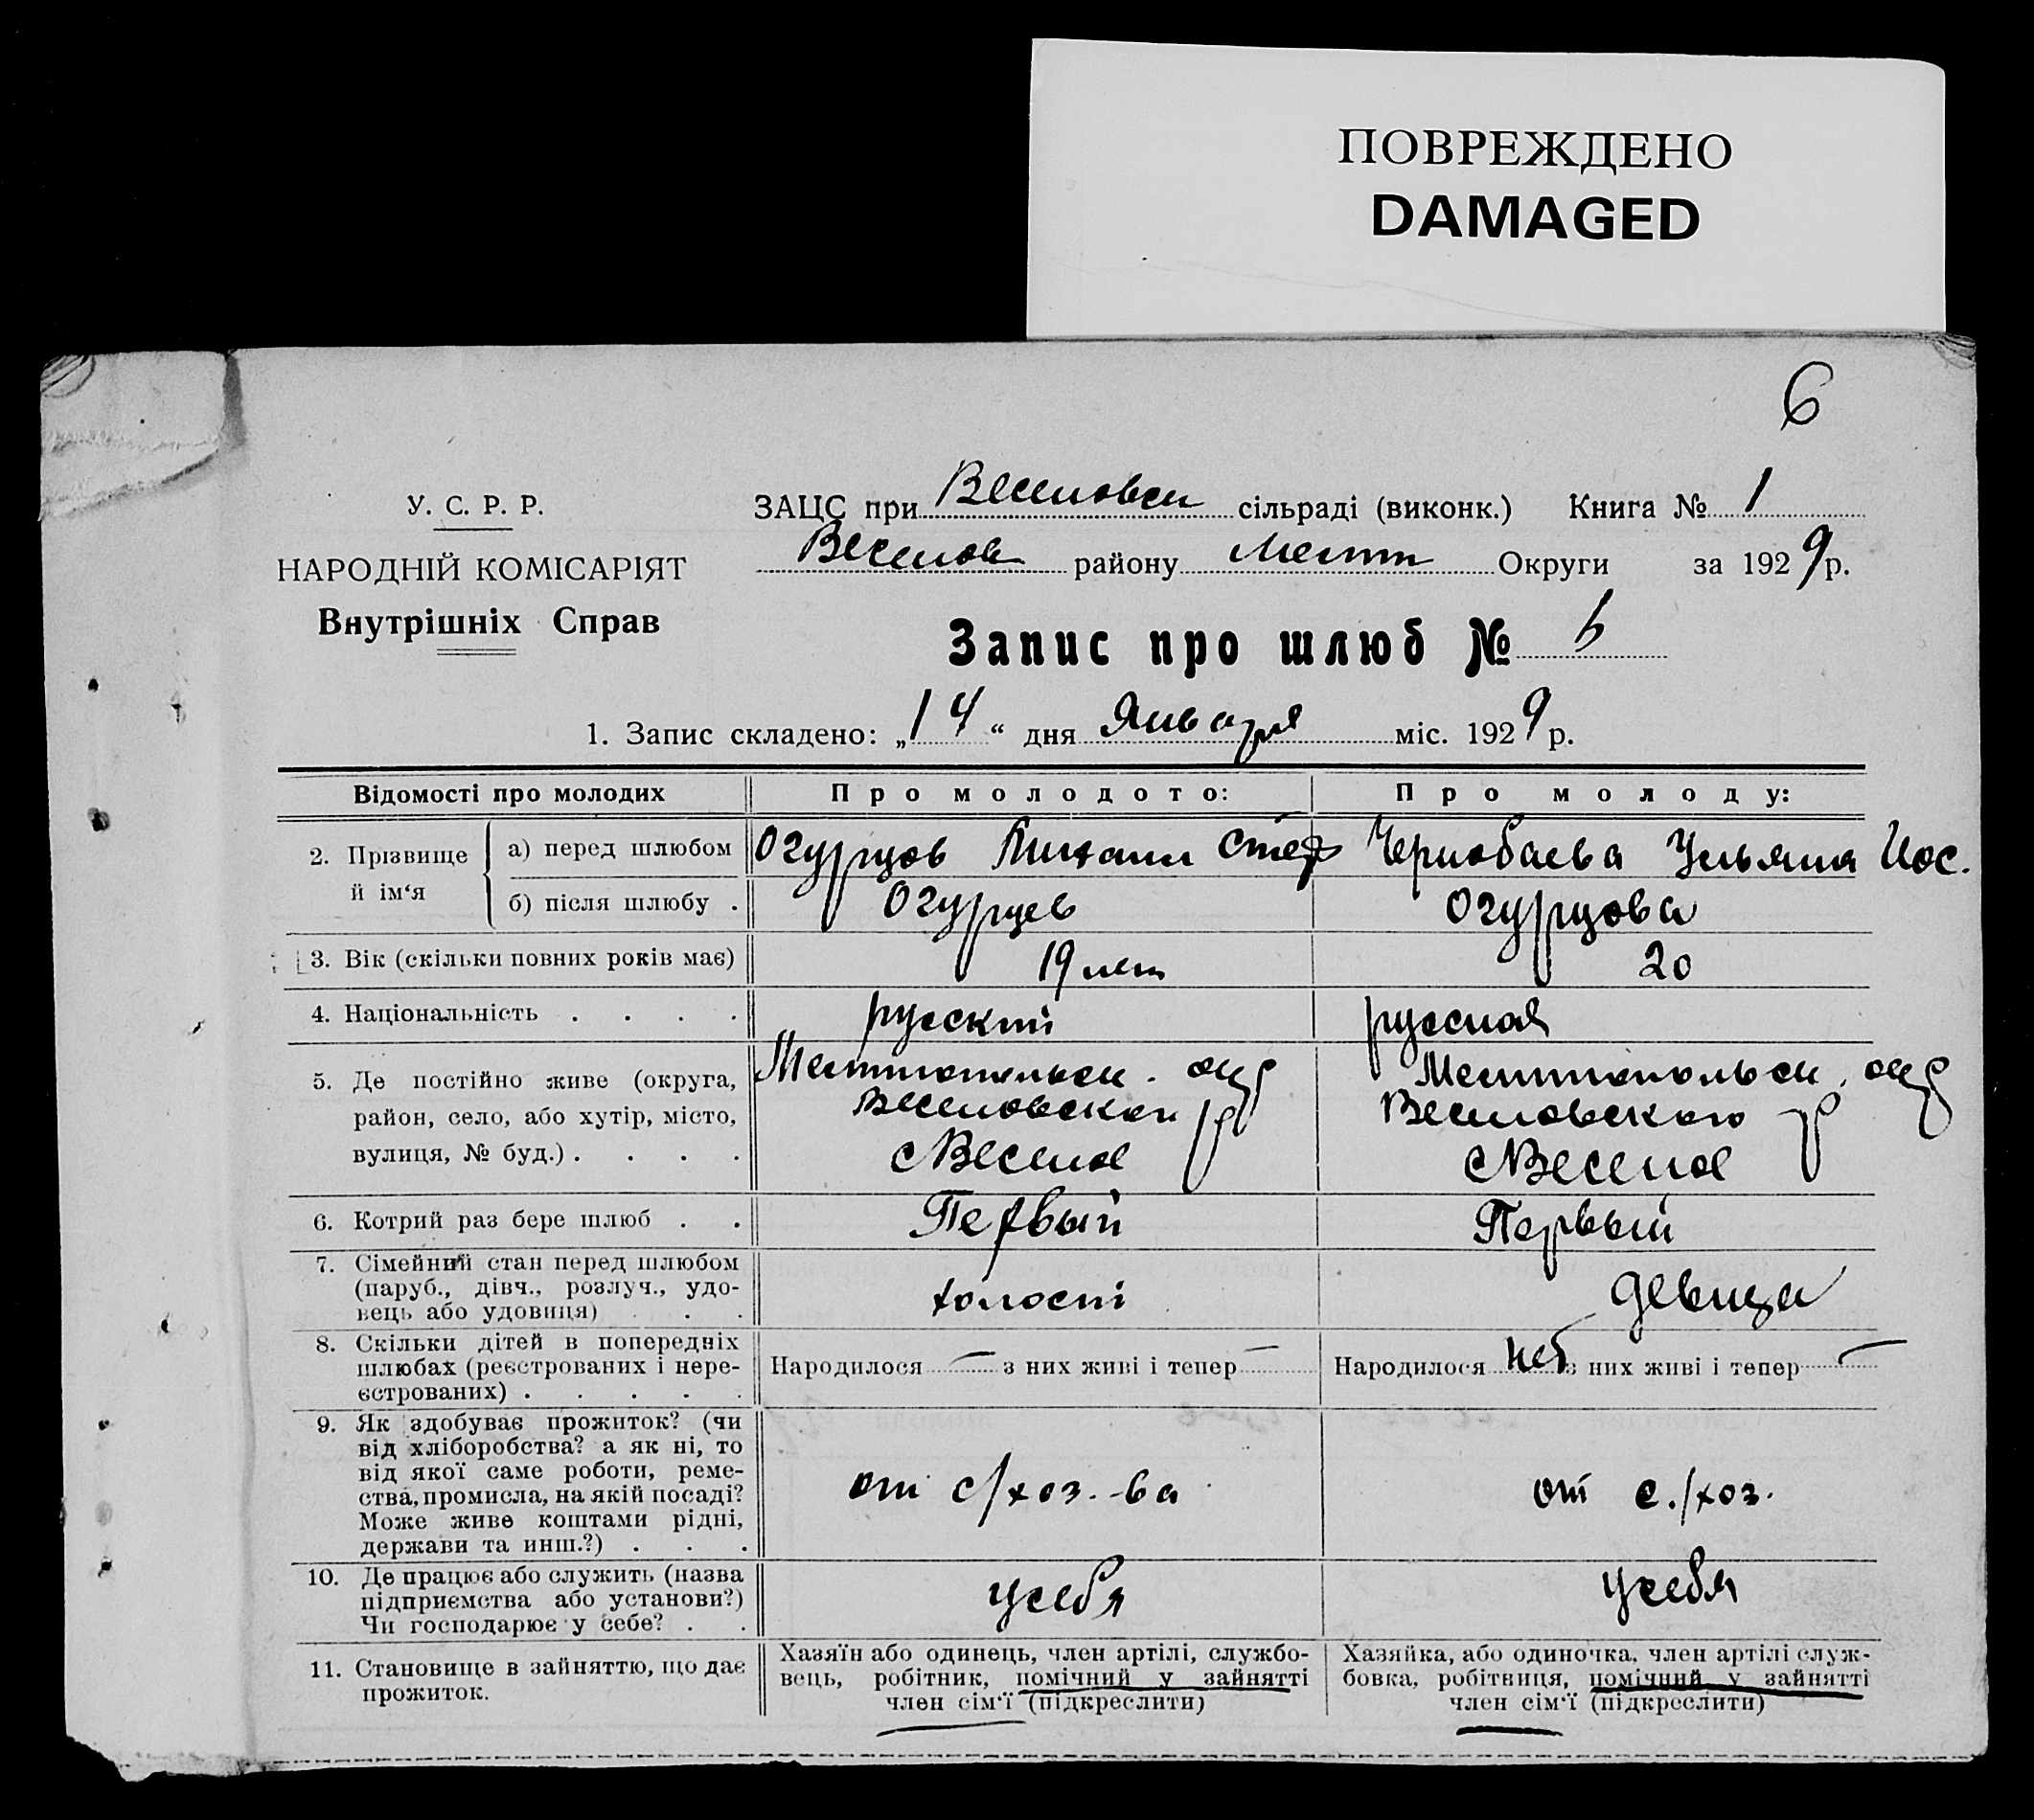 ПОВРЕЖДЕНО
DAMAGED
6
У. С. Р. Р.
НАРОДНІЙ КОМІСАРІЯТ
Внутрішніх Справ
ЗАЦС при Веселовск сільраді (виконк.) Книга № 1
Веселов району Мелит Округи за 1929 р.
Запис про шлюб № 6
1. Запис складено: „14“ дня Января міс. 1929 р.
Відомості про молодих Про молодого: Про молоду:
2. Прізвище й ім‘я
а) перед шлюбом Огурцов Михаил Стеф Чернобаева Ульяна Иос.
б) після шлюбу . Огурцов Огурцова
3. Вік (скільки повних років має) 19 лет 20
4. Національність . . . . русский русская
5. Де постійно живе (округа,
район, село, або хутір, місто,
вулиця, № буд.) . . . .
Мелитопольск. окр
Веселовског р
с Веселое
Мелитопольск. окр
Веселовского р
с Веселое
6. Котрий раз бере шлюб . . Первый Первый
7. Сімейний стан перед шлюбом
(паруб., дівч., розлуч., удо-
вець або удовиця) . . .
холост
девица
8. Скільки дітей в попередніх
шлюбах (реєстрованих і нере-
єстрованих) . . . . .
Народилося — з них живі і тепер —
Народилося нет з них живі і тепер —
9. Як здобуває прожиток? (чи
від хліборобства? а як ні, то
від якої саме роботи, реме-
ства, промисла, на якій посаді?
Може живе коштами рідні,
держави та инш.?) . . .
от с/хоз.-ва
от с./хоз.
10. Де працює або служить (назва
підприємства або установи?)
Чи господарює у себе? . .
у себя
у себя
11. Становище в зайняттю, що дає
прожиток.
Хазяїн або одинець, член артілі, службо-
вець, робітник, помічний у зайнятті
член сім‘ї (підкреслити)
Хазяйка, або одиночка, член артілі служ-
бовка, робітниця, помічний у зайнятті
член сім‘ї (підкреслити)